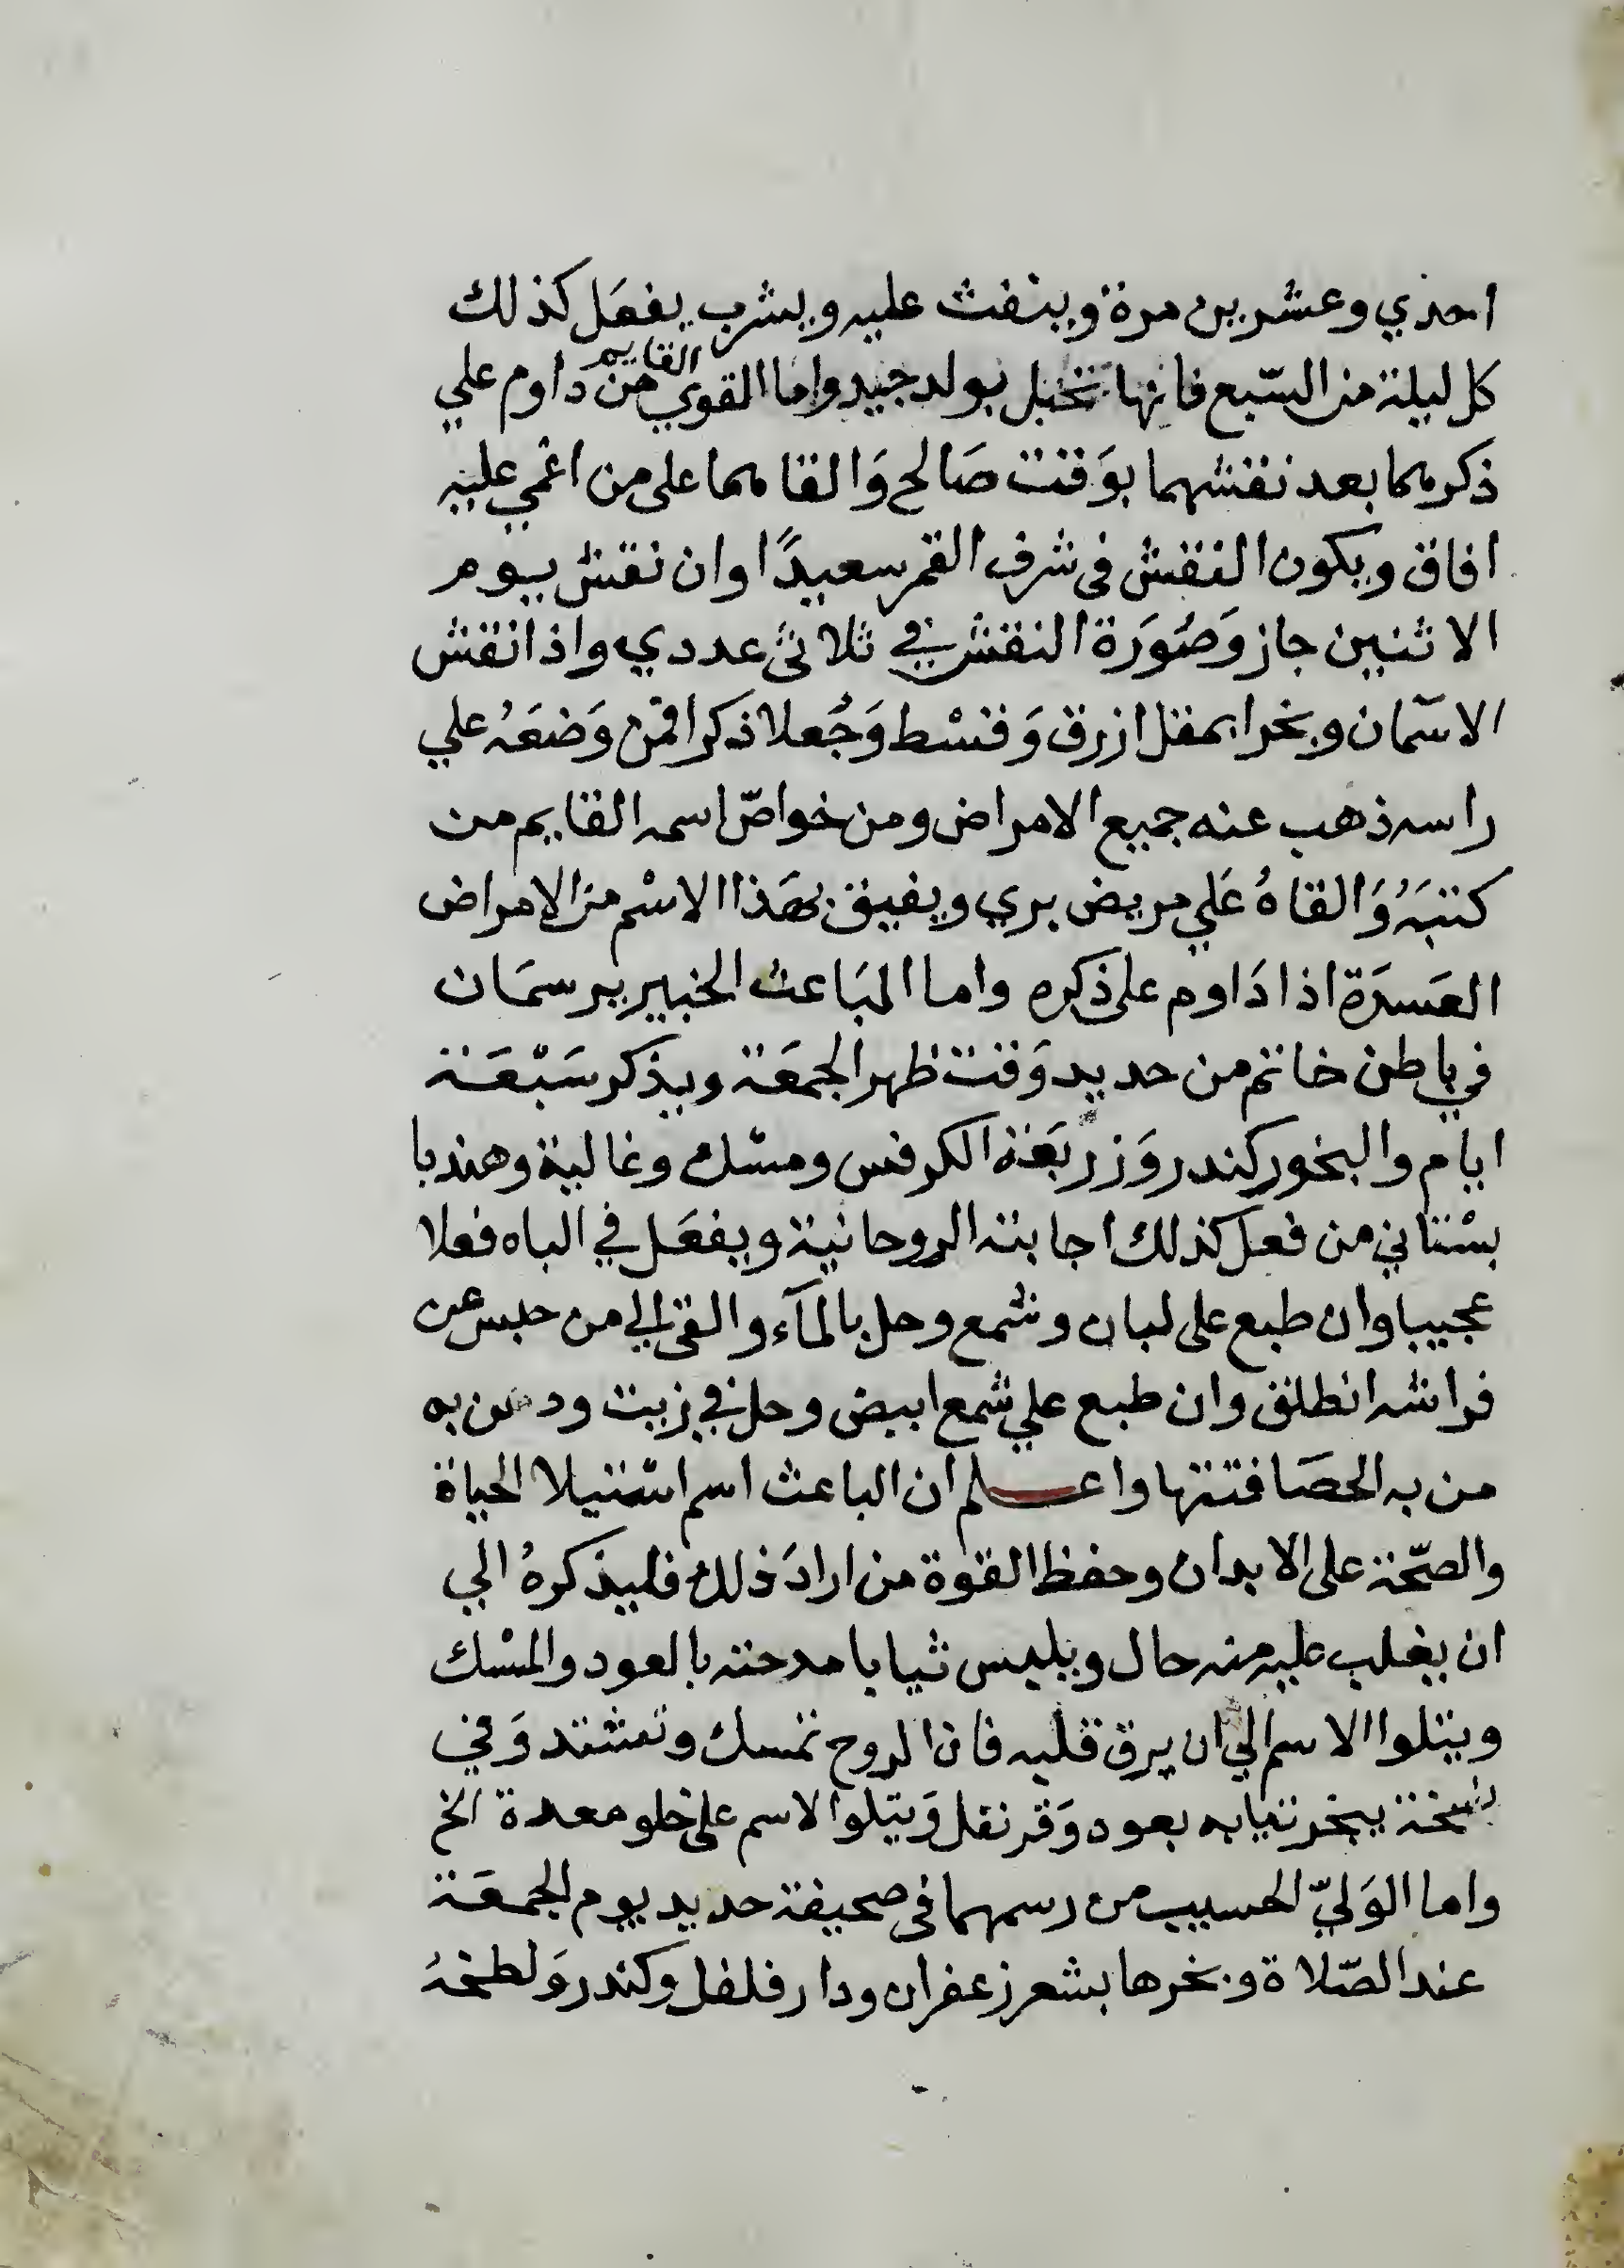 احدي وعشرين مرة وينفث عليه ويشرب يفعَل كذلك
كل ليلة من السّبع فانها تحبل بولد جيد واما القوي القايم من داوم علي
ذكرهما بعد نقشهما بوَقت صَالح وَالقاهما على من اغمي عليه
افاق ويكون النقش فى شرف القمر سعيدًا وان نقش بيوم
الاثنين جاز وَصُورَة النقش في ثلاثى عددي واذا نقش
الاسمان وبخرا بمقل ازرق وَقسْط وَجُعلا ذكرا فمن وَضعَهُ علي
راسه ذهب عنه جميع الامراض ومن خواصّ اسمه القايم من
كتبَهُ وَالقاهُ عَلي مريض بري ويفيق بهَذا الاسْم من الامراض
العَسرَة اذا دَاوم على ذكره واما البَاعث الخبير يرسمَان
في باطن خاتم من حديد وَقت ظهر الجمعَة ويذكر سَبْعَة
ايام والبخور كندر وَزريَعَة الكرفس ومسْك وغالية وهندبا
بسْتاني من فعل كذلك اجابته الروحانية ويفعَل في الباه فعلا
عجيبا وان طبع على لبان وشمع وحل بالمآء والقى الي من حبس عن
فراشه انطلق وان طبع علي شمع ابيض وحل في زيت ودهن به
من به الحصَا فتتها واعلم ان الباعث اسم استيلا الحياة
والصّحة على الابدان وحفظ القوة من ارادَ ذلك فليذكرهُ الي
ان يغلب عليه منه حال ويلبس ثيابا مدخنه بالعود والمسْك
ويتلوا الاسم الي ان يرق قلبه فان الروح تمسك وتشتد وَفي
نسخة يبخر ثيابه بعود وَقرنفل وَيتلوا الاسم على خلو معدة الخ
واما الوَليّ الحسيب من رسمهما فى صحيفة حديد يوم الجمعَة
عند الصّلاة وبخرها بشعر زعفران ودار فلفل وكندر وَلطخهُ